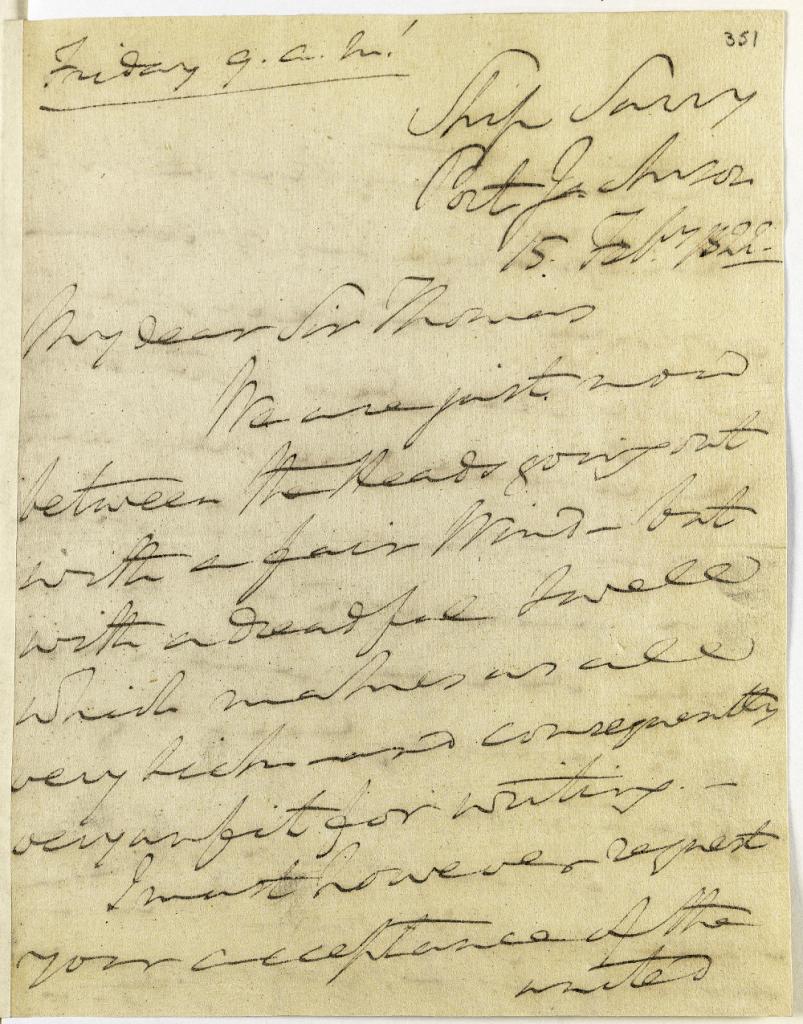 351
Friday 9. a. m!
Ship Surry
Port Jackson
15. Feby. 1822.
My dear Sir Thomas
We are just now
between the Heads going out
with a fair Wind – but
with a dreadful Swell
which makes us all
very sick and consequently
very unfit for writing. –
I must however request
your acceptance of the
united